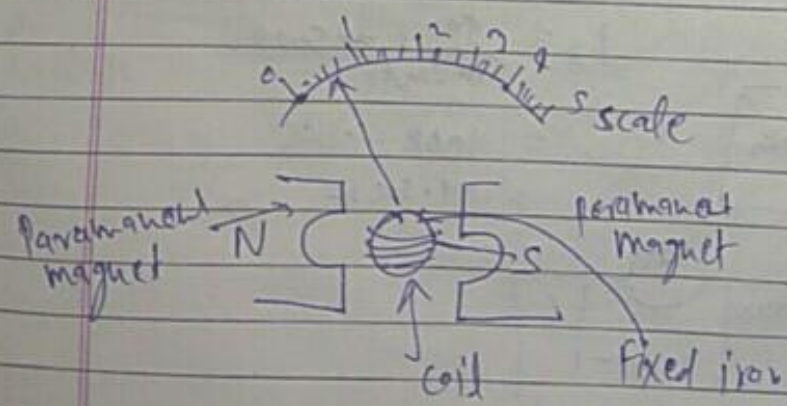 0 1 2 3 4 5 scale
Paramanent
magnet
N
S
peramanent
magnet
coil
Fixed iron